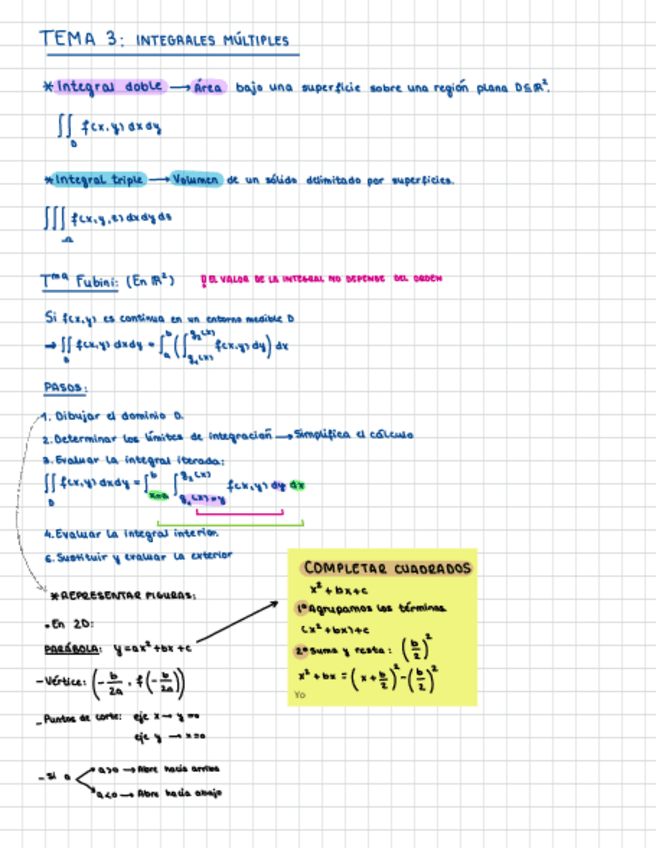 TEMA 3: INTEGRALES MÚLTIPLES
* Integral doble → Área bajo una superficie sobre una región plana D⊆ℝ².
∬_D f(x,y) dxdy
* Integral triple → Volumen de un sólido delimitado por superficies.
∭_Ω f(x,y,z) dxdydz
Tma Fubini: (En ℝ²) ! EL VALOR DE LA INTEGRAL NO DEPENDE DEL ORDEN
Si f(x,y) es continua en un entorno medible D
→ ∬_D f(x,y) dxdy = ∫_a^b (∫_{g₁(x)}^{g₂(x)} f(x,y) dy) dx
PASOS:
1. Dibujar el dominio D.
2. Determinar los límites de integración → Simplifica el cálculo
3. Evaluar la integral iterada:
∬_D f(x,y) dxdy = ∫_{x=a}^b ∫_{g₁(x)=y}^{g₂(x)} f(x,y) dy dx
4. Evaluar la integral interior.
5. Sustituir y evaluar la exterior
* REPRESENTAR FIGURAS:
• En 2D:
PARÁBOLA: y=ax²+bx+c
- Vértice: (-b/2a, f(-b/2a))
- Puntos de corte: eje x → y=0
eje y → x=0
- Si a
a>0 → Abre hacia arriba
a<0 → Abre hacia abajo
COMPLETAR CUADRADOS
x²+bx+c
1º Agrupamos los términos
(x²+bx)+c
2º Suma y resta: (b/2)²
x²+bx = (x+b/2)² - (b/2)²
Yo